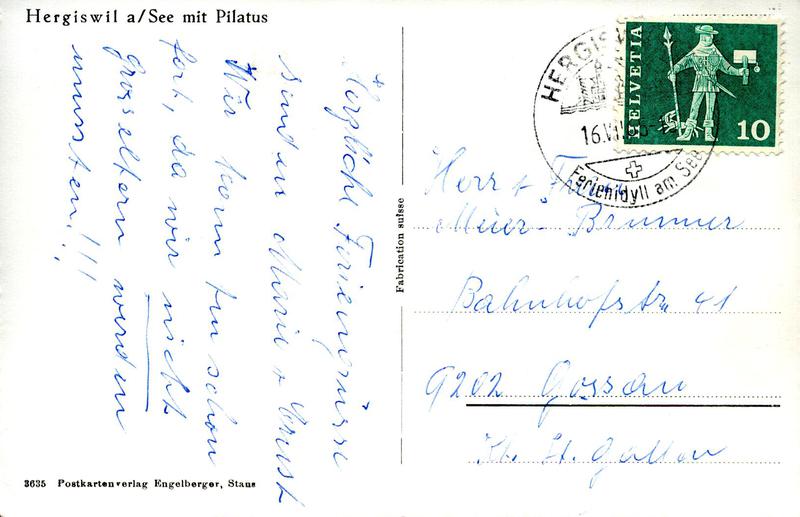 Hergiswil a/See mit Pilatus
Herzliche Feriengrüsse
senden Marie + Ernst
Wir schon
fort, da wir nicht
Grosseltern werden
mussten!!!
3635 Postkartenverlag Engelberger, Stans
Fabrication suisse
HELVETIA
10
HERGISWIL
16.VII
Ferienidyll am See
Herr + Frau
Meier-Brunner
Bahnhofstr 41
9202 Gossau
Kt. St. Gallen